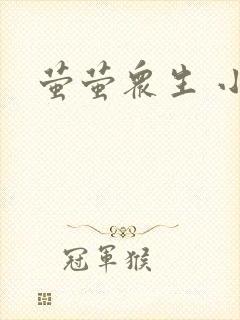 萤萤众生 小
冠軍猴